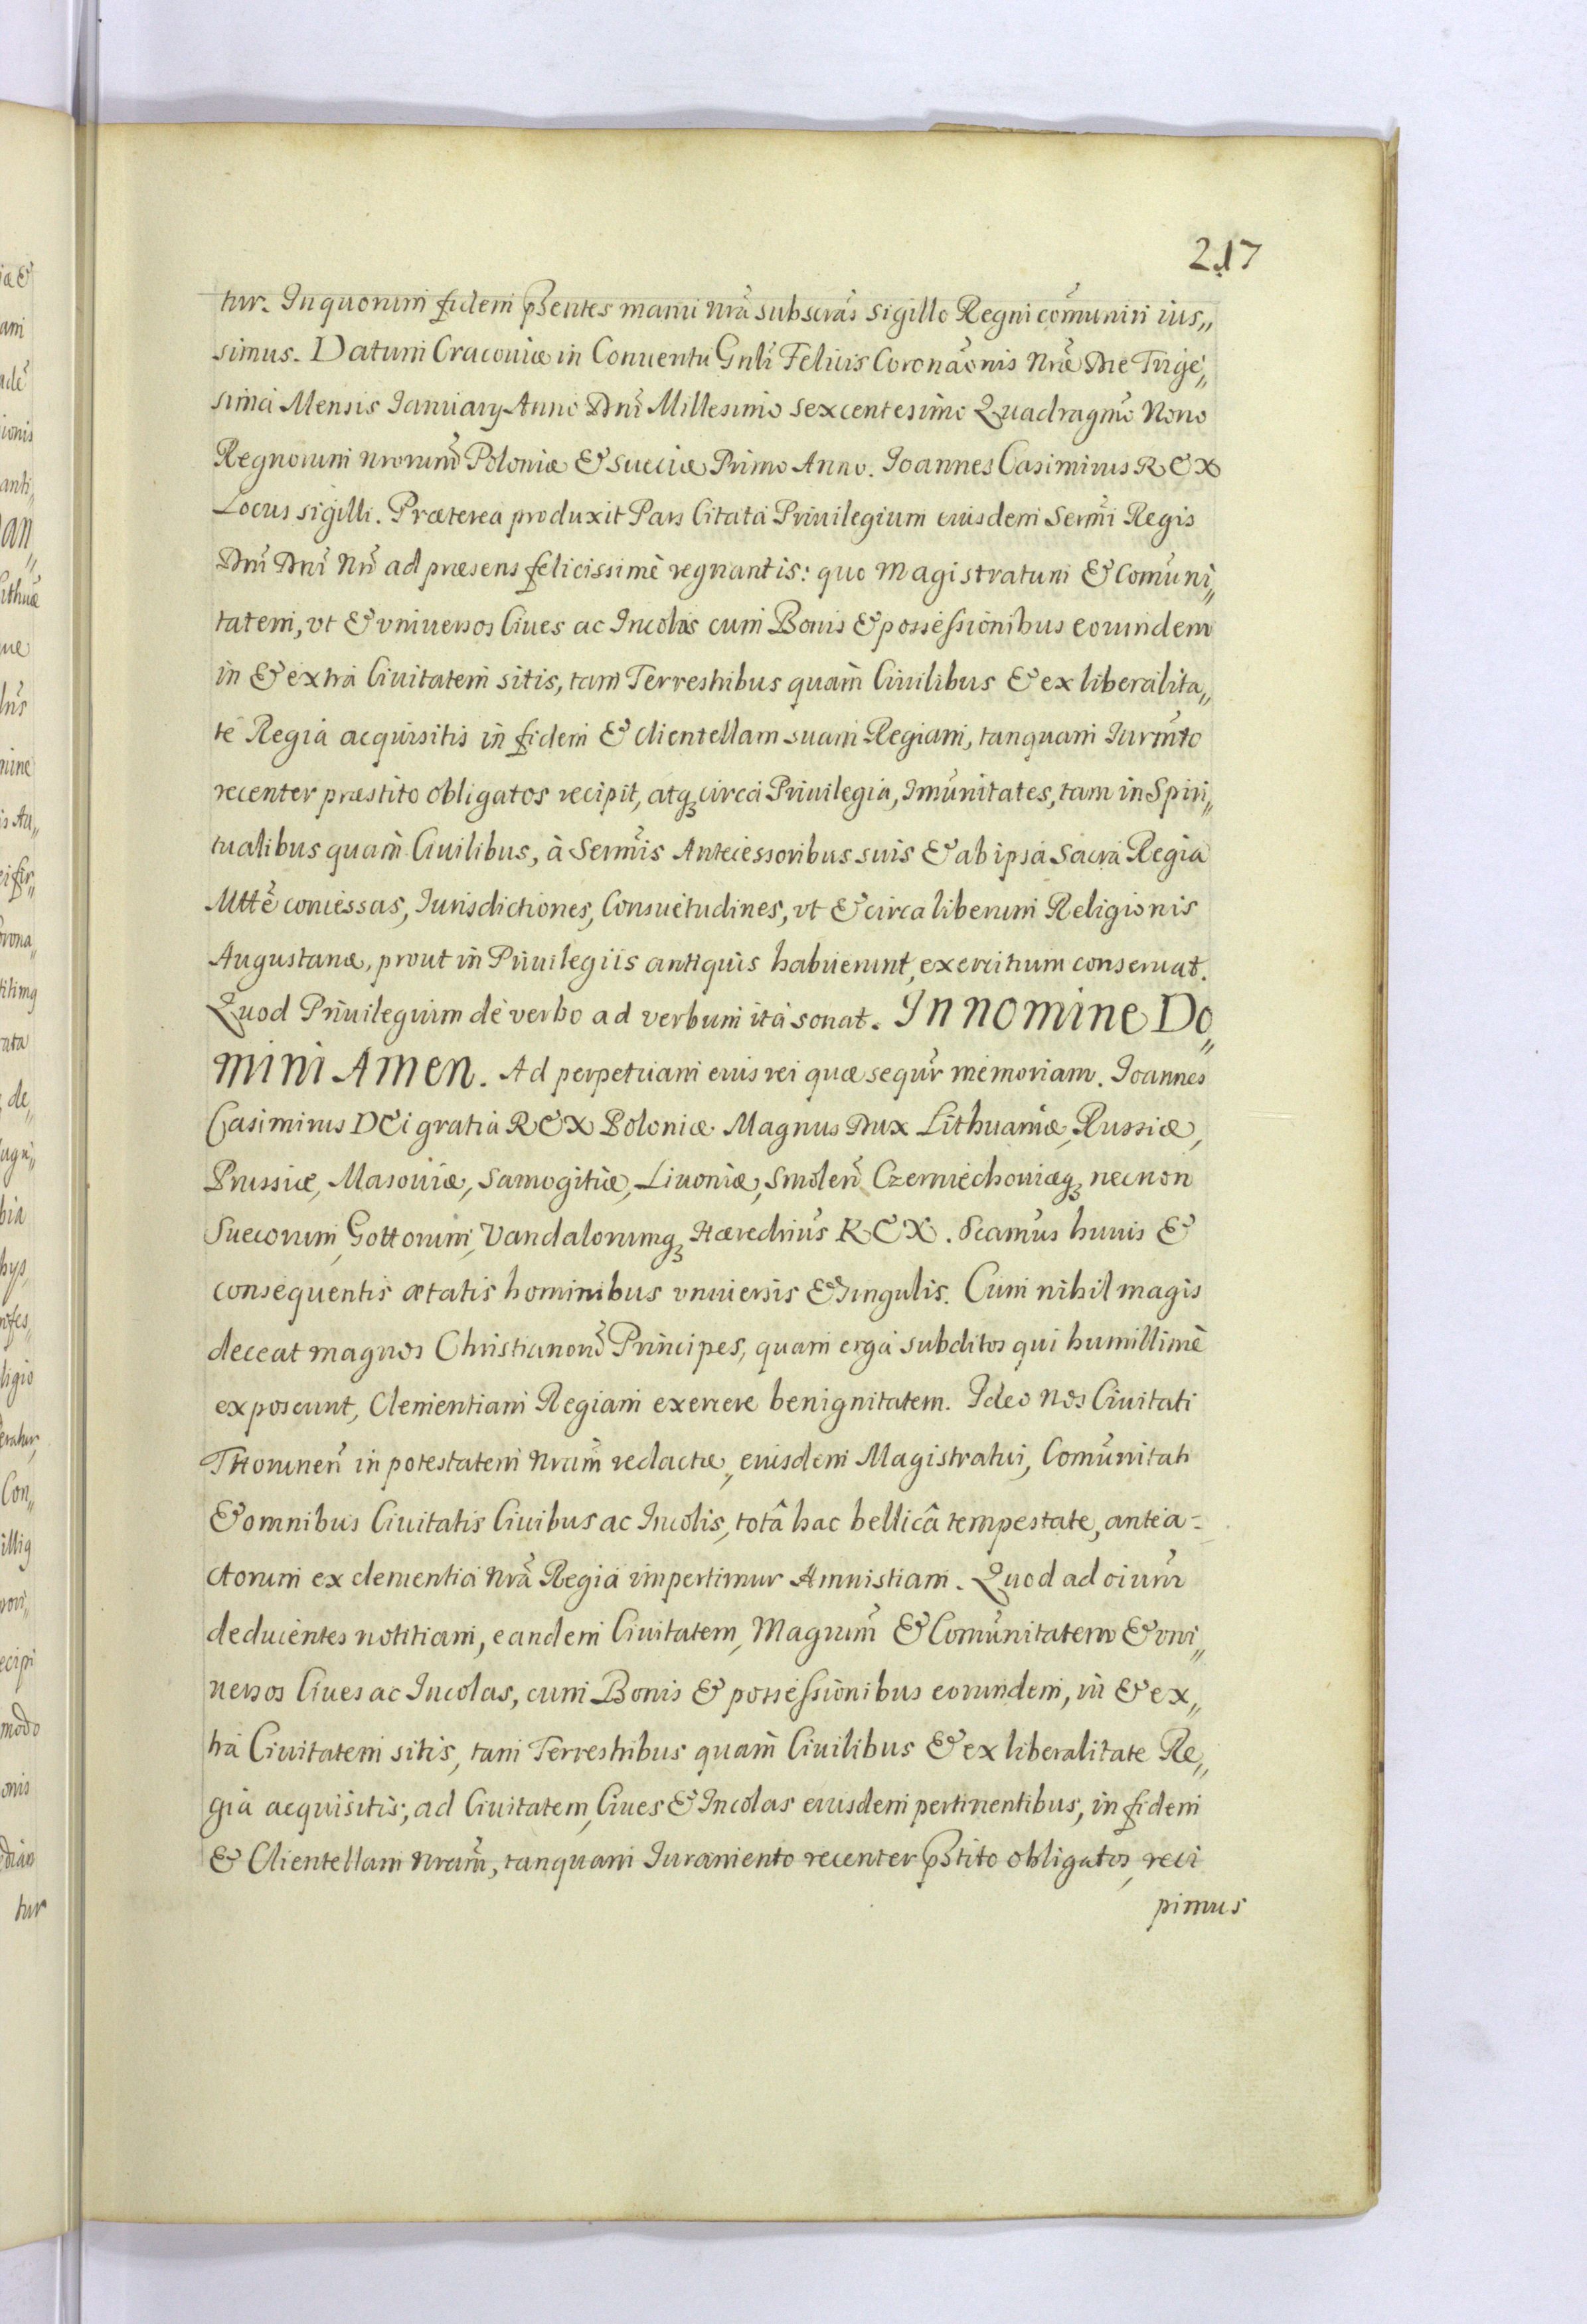 217
tur. In quorum fidem p̃sentes manu nr̃a subscrãs sigillo Regni com̃uniri ius„
simus. Datum Cracoviæ in Conventu Gnl̃i Felicis Coronãonis nr̃æ Die Trige„
sima Mensis Ianuarij Anno Dñi Millesimo sexcentesimo Quadragm̃o Nono
Regnorum nrorum̃ Poloniæ & Sueciæ Primo Anno. Joannes Casimirus REX
Locus sigilli. Præterea produxit Pars Citata Priuilegium eiusdem Serm̃i Regis
Dñi Dñi Nr̃i ad præsens felicissimè regnantis: quo Magistratum & Com̃uni„
tatem, vt & vniuersos Ciues ac Incolas cum Bonis & possessionibus eorundem
in & extra Ciuitatem sitis, tam Terrestribus quàm Ciuilibus & ex liberalita„
te Regia acquisitis in fidem & clientellam suam Regiam, tanquam Iurm̃to
recenter præstito obligatos recipit, atq; circa Priuilegia, Im̃unitates, tam in Spiri„
tualibus quàm Ciuilibus, à Serm̃is Antecessoribus suis & ab ipsa Sacra Regia
Mttẽ concessas, Iurisdictiones, Consuetudines, vt & circa liberum Religionis
Augustanæ, prout in Priuilegiis antiquis habuerunt, exercitium conseruat.
Quod Priuilegium de verbo ad verbum ita sonat. In nomine Do„
mini Amen. Ad perpetuam eius rei quæ sequr̃ memoriam. Joannes
Casimirus DEi gratia REX Poloniæ. Magnus Dux Lithuaniæ, Russiæ,
Prussiæ, Masoviæ, Samogitiæ, Livoniæ, Smolen̄ Czerniechoviæq; necnon
Suecorum, Gottorum, Vandalorumq; Hæredrius̃ REX. Scamus̃ huius &
consequentis ætatis hominibus vniuersis & singulis. Cum nihil magis
deceat magnos Christianorũ Principes, quam erga subditos qui humillimè
exposcunt, Clementiam Regiam exercere benignitatem. Ideo nos Ciuitati
THorunen̄ in potestatem nram̃ redactæ, eiusdem Magistratui, Com̃unitati
& omnibus Ciuitatis Ciuibus ac Incolis, totâ hac bellicâ tempestate, antea-
ctorum ex clementia nr̃a Regia impertimur Amnistiam. Quod ad oium̃
deducentes notitiam, eandem Ciuitatem, Magrum̃ & Com̃unitatem & vni„
uersos Ciues ac Incolas, cum Bonis & possessionibus eorundem, in & ex„
tra Ciuitatem sitis, tam Terrestribus quàm Ciuilibus & ex liberalitate Re„
gia acquisitis; ad Ciuitatem, Ciues & Incolas eiusdem pertinentibus, in fidem
& Clientellam nram̃, tanquam Iuramento recenter p̃stito obligatos, reci
pimus